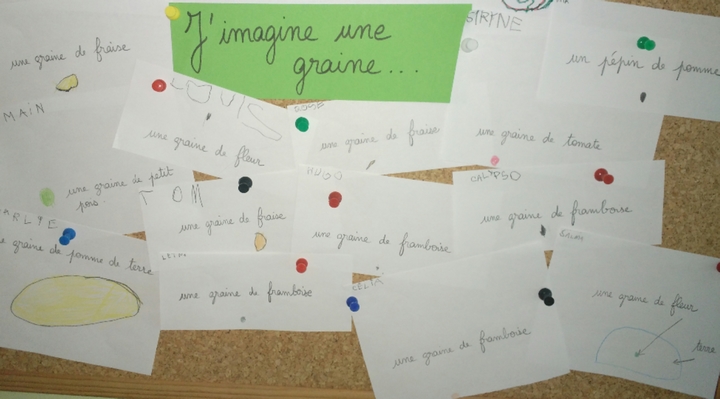 J'imagine une
graine...
une graine de fraise
SIRINE
un pépin de pomme
MAIN
LOUIS
une graine de fleur
une graine de fraise
une graine de tomate
une graine de petit
pois
TOM
une graine de fraise
HUGO
une graine de framboise
CALYPSO
une graine de framboise
graine de pomme de terre
une graine de framboise
CÉLIA
une graine de framboise
une graine de fleur
terre